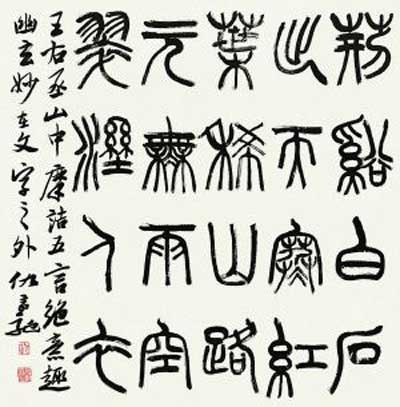 荆谿白石
出天寒紅
葉稀山路
元無雨空
翠溼人衣
王右丞山中摩詰五言絶意趣
幽玄妙在文字之外